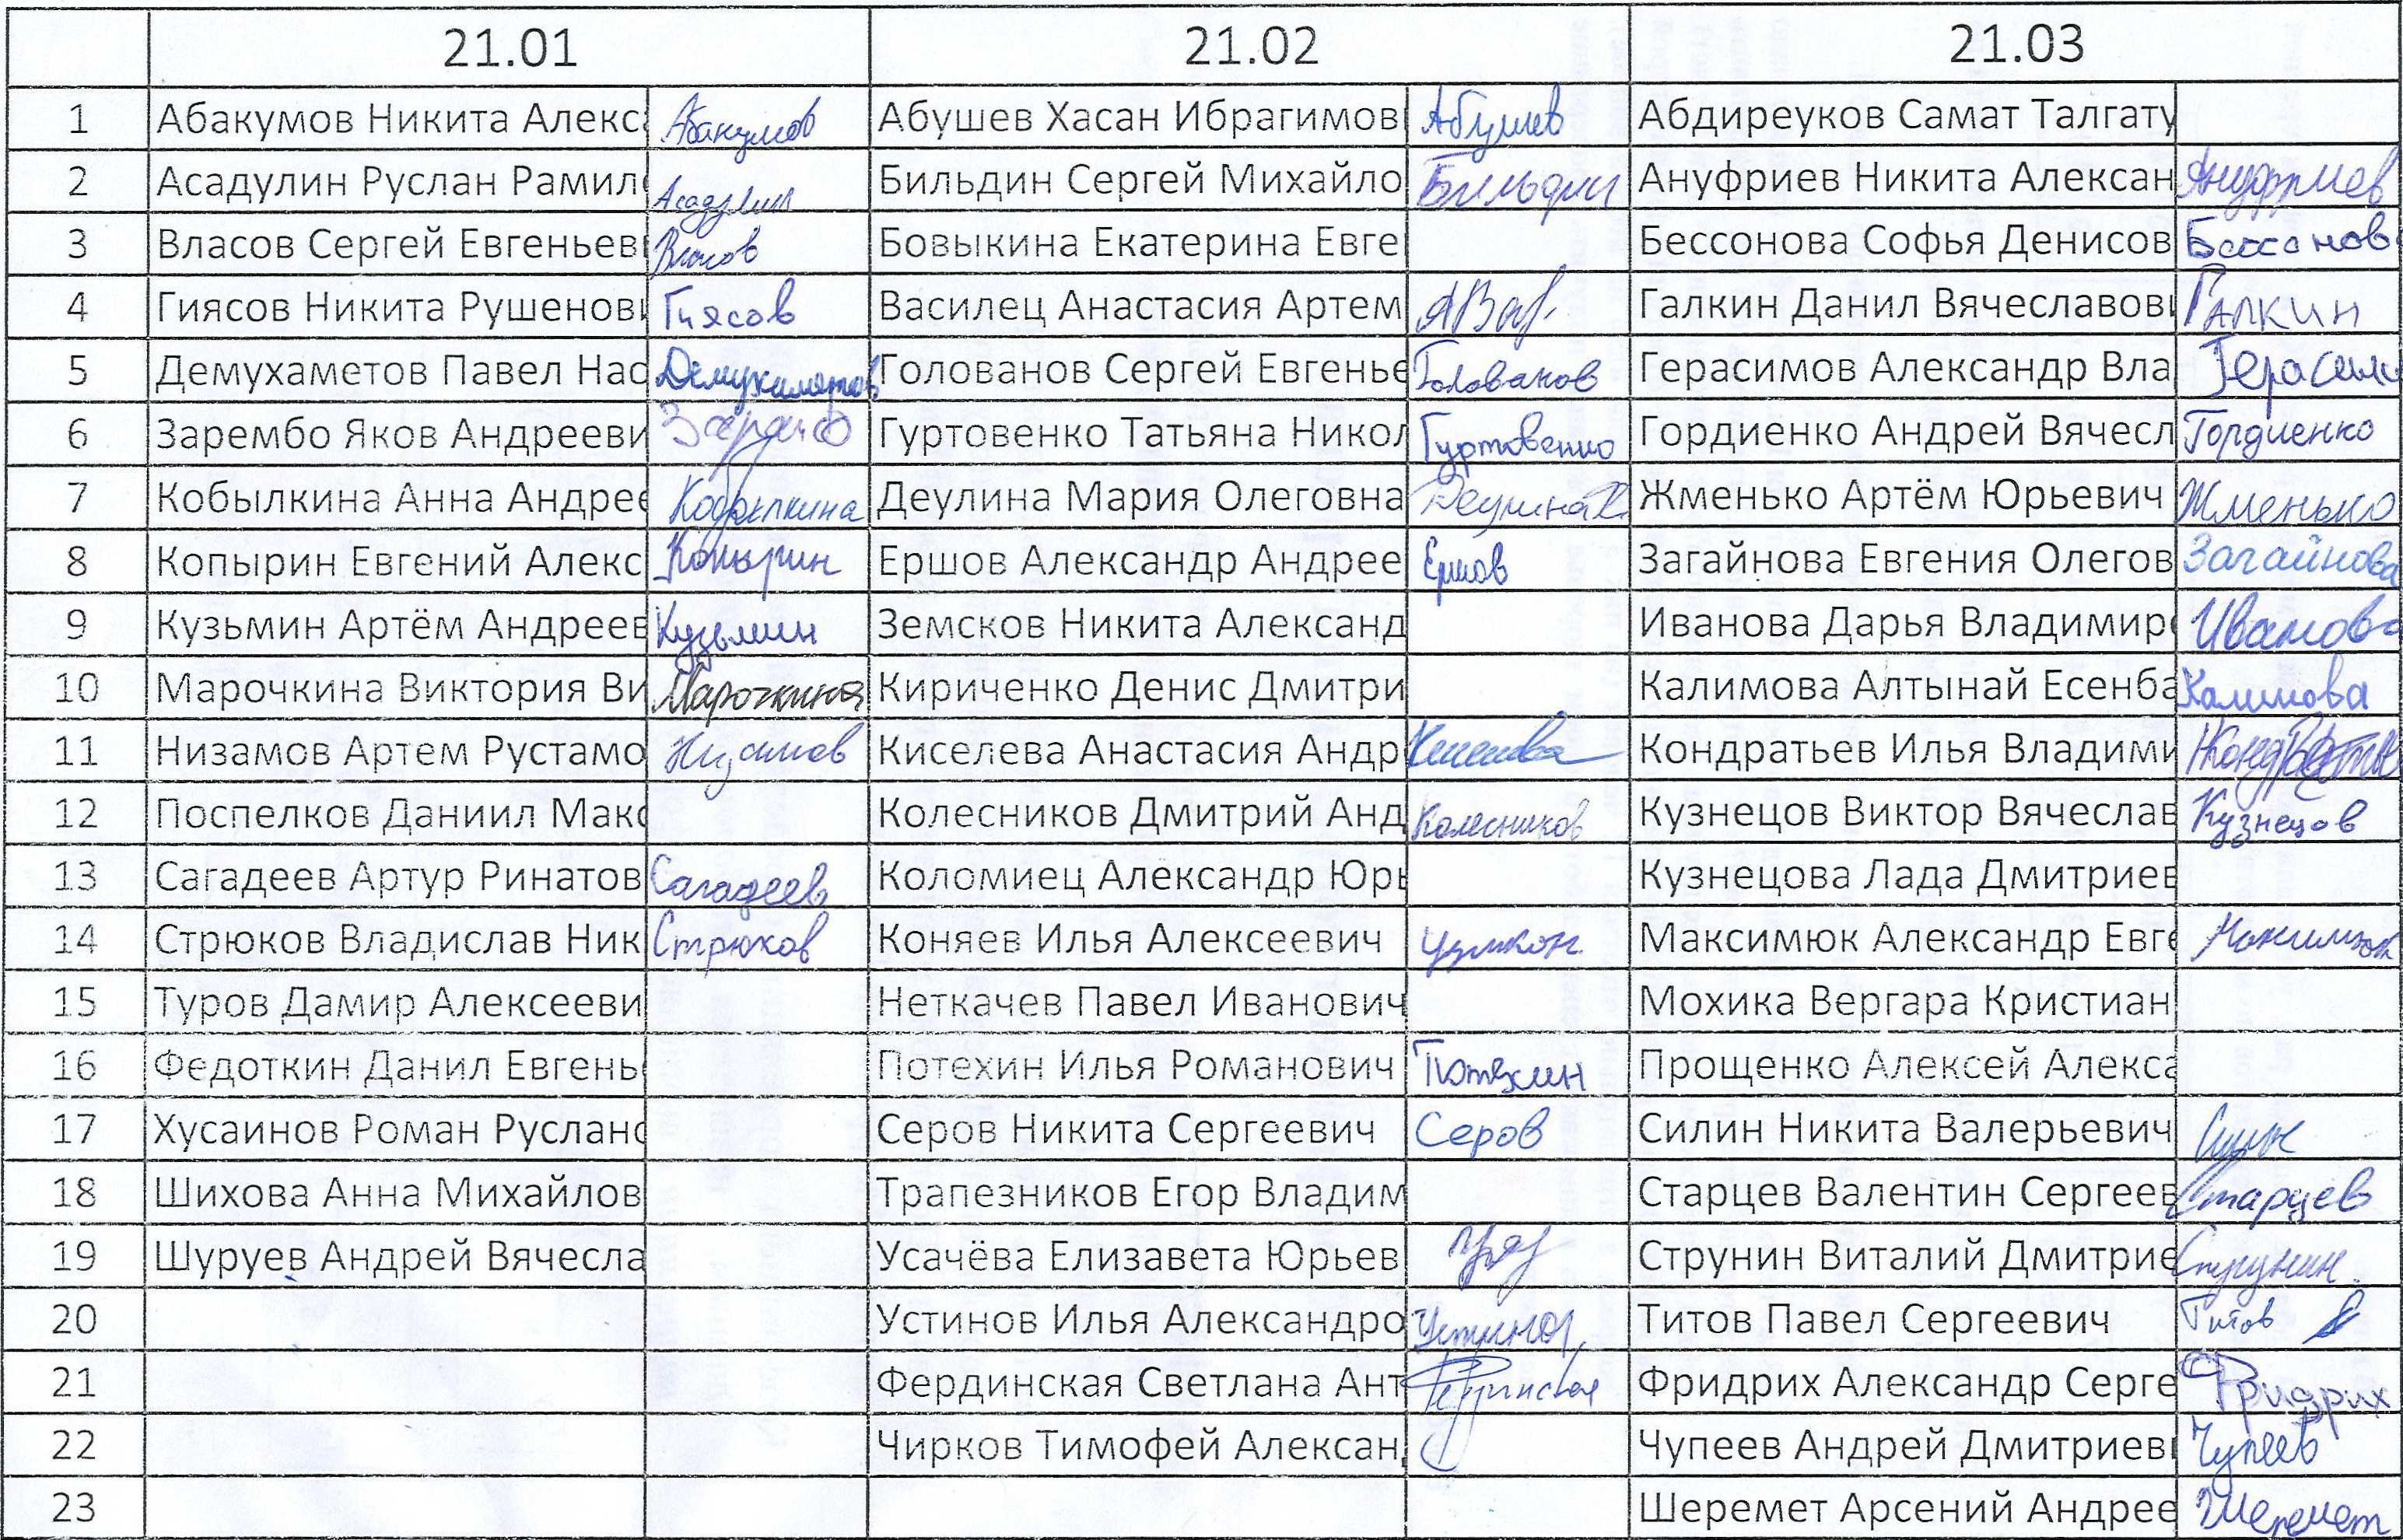 21.01 21.02 21.03
1 Абакумов Никита Алекс Абакумов Абушев Хасан Ибрагимов Абушев Абдиреуков Самат Талгату
2 Асадулин Руслан Рамил Асадулин Бильдин Сергей Михайло Бильдин Ануфриев Никита Алексан Ануфриев
3 Власов Сергей Евгеньев Власов Бовыкина Екатерина Евге Бессонова Софья Денисов Бессонов
4 Гиясов Никита Рушенов Гиясов Василец Анастасия Артем Галкин Данил Вячеславов Галкин
5 Демухаметов Павел Нас Демухаметов Голованов Сергей Евгенье Голованов Герасимов Александр Вла Герасим
6 Зарембо Яков Андрееви Гуртовенко Татьяна Никол Гуртовенко Гордиенко Андрей Вячесл Гордиенко
7 Кобылкина Анна Андрее Кобылкина Деулина Мария Олеговна Деулина Жменько Артём Юрьевич Жменько
8 Копырин Евгений Алекс Копырин Ершов Александр Андрее Ершов Загайнова Евгения Олегов Загайнова
9 Кузьмин Артём Андреев Кузьмин Земсков Никита Александ Иванова Дарья Владимир Иванова
10 Марочкина Виктория Ви Марочкина Кириченко Денис Дмитри Калимова Алтынай Есенба Калимова
11 Низамов Артем Рустамо Низамов Киселева Анастасия Андр Киселева Кондратьев Илья Владими Кондратьев
12 Поспелков Даниил Макс Колесников Дмитрий Анд Колесников Кузнецов Виктор Вячеслав Кузнецов
13 Сагадеев Артур Ринатов Сагадеев Коломиец Александр Юрь Кузнецова Лада Дмитриев
14 Стрюков Владислав Ник Стрюков Коняев Илья Алексеевич Максимюк Александр Евге Максимюк
15 Туров Дамир Алексееви Неткачев Павел Иванович Мохика Вергара Кристиан
16 Федоткин Данил Евгень Потехин Илья Романович Потехин Прощенко Алексей Алекса
17 Хусаинов Роман Руслано Серов Никита Сергеевич Серов Силин Никита Валерьевич
18 Шихова Анна Михайлов Трапезников Егор Владим Старцев Валентин Сергеев Старцев
19 Шуруев Андрей Вячесла Усачёва Елизавета Юрьев Струнин Виталий Дмитрие Струнин
20 Устинов Илья Александро Устинов Титов Павел Сергеевич Титов
21 Фердинская Светлана Ант Фердинская Фридрих Александр Серге Фридрих
22 Чирков Тимофей Алексан Чупеев Андрей Дмитриев Чупеев
23 Шеремет Арсений Андрее Шеремет